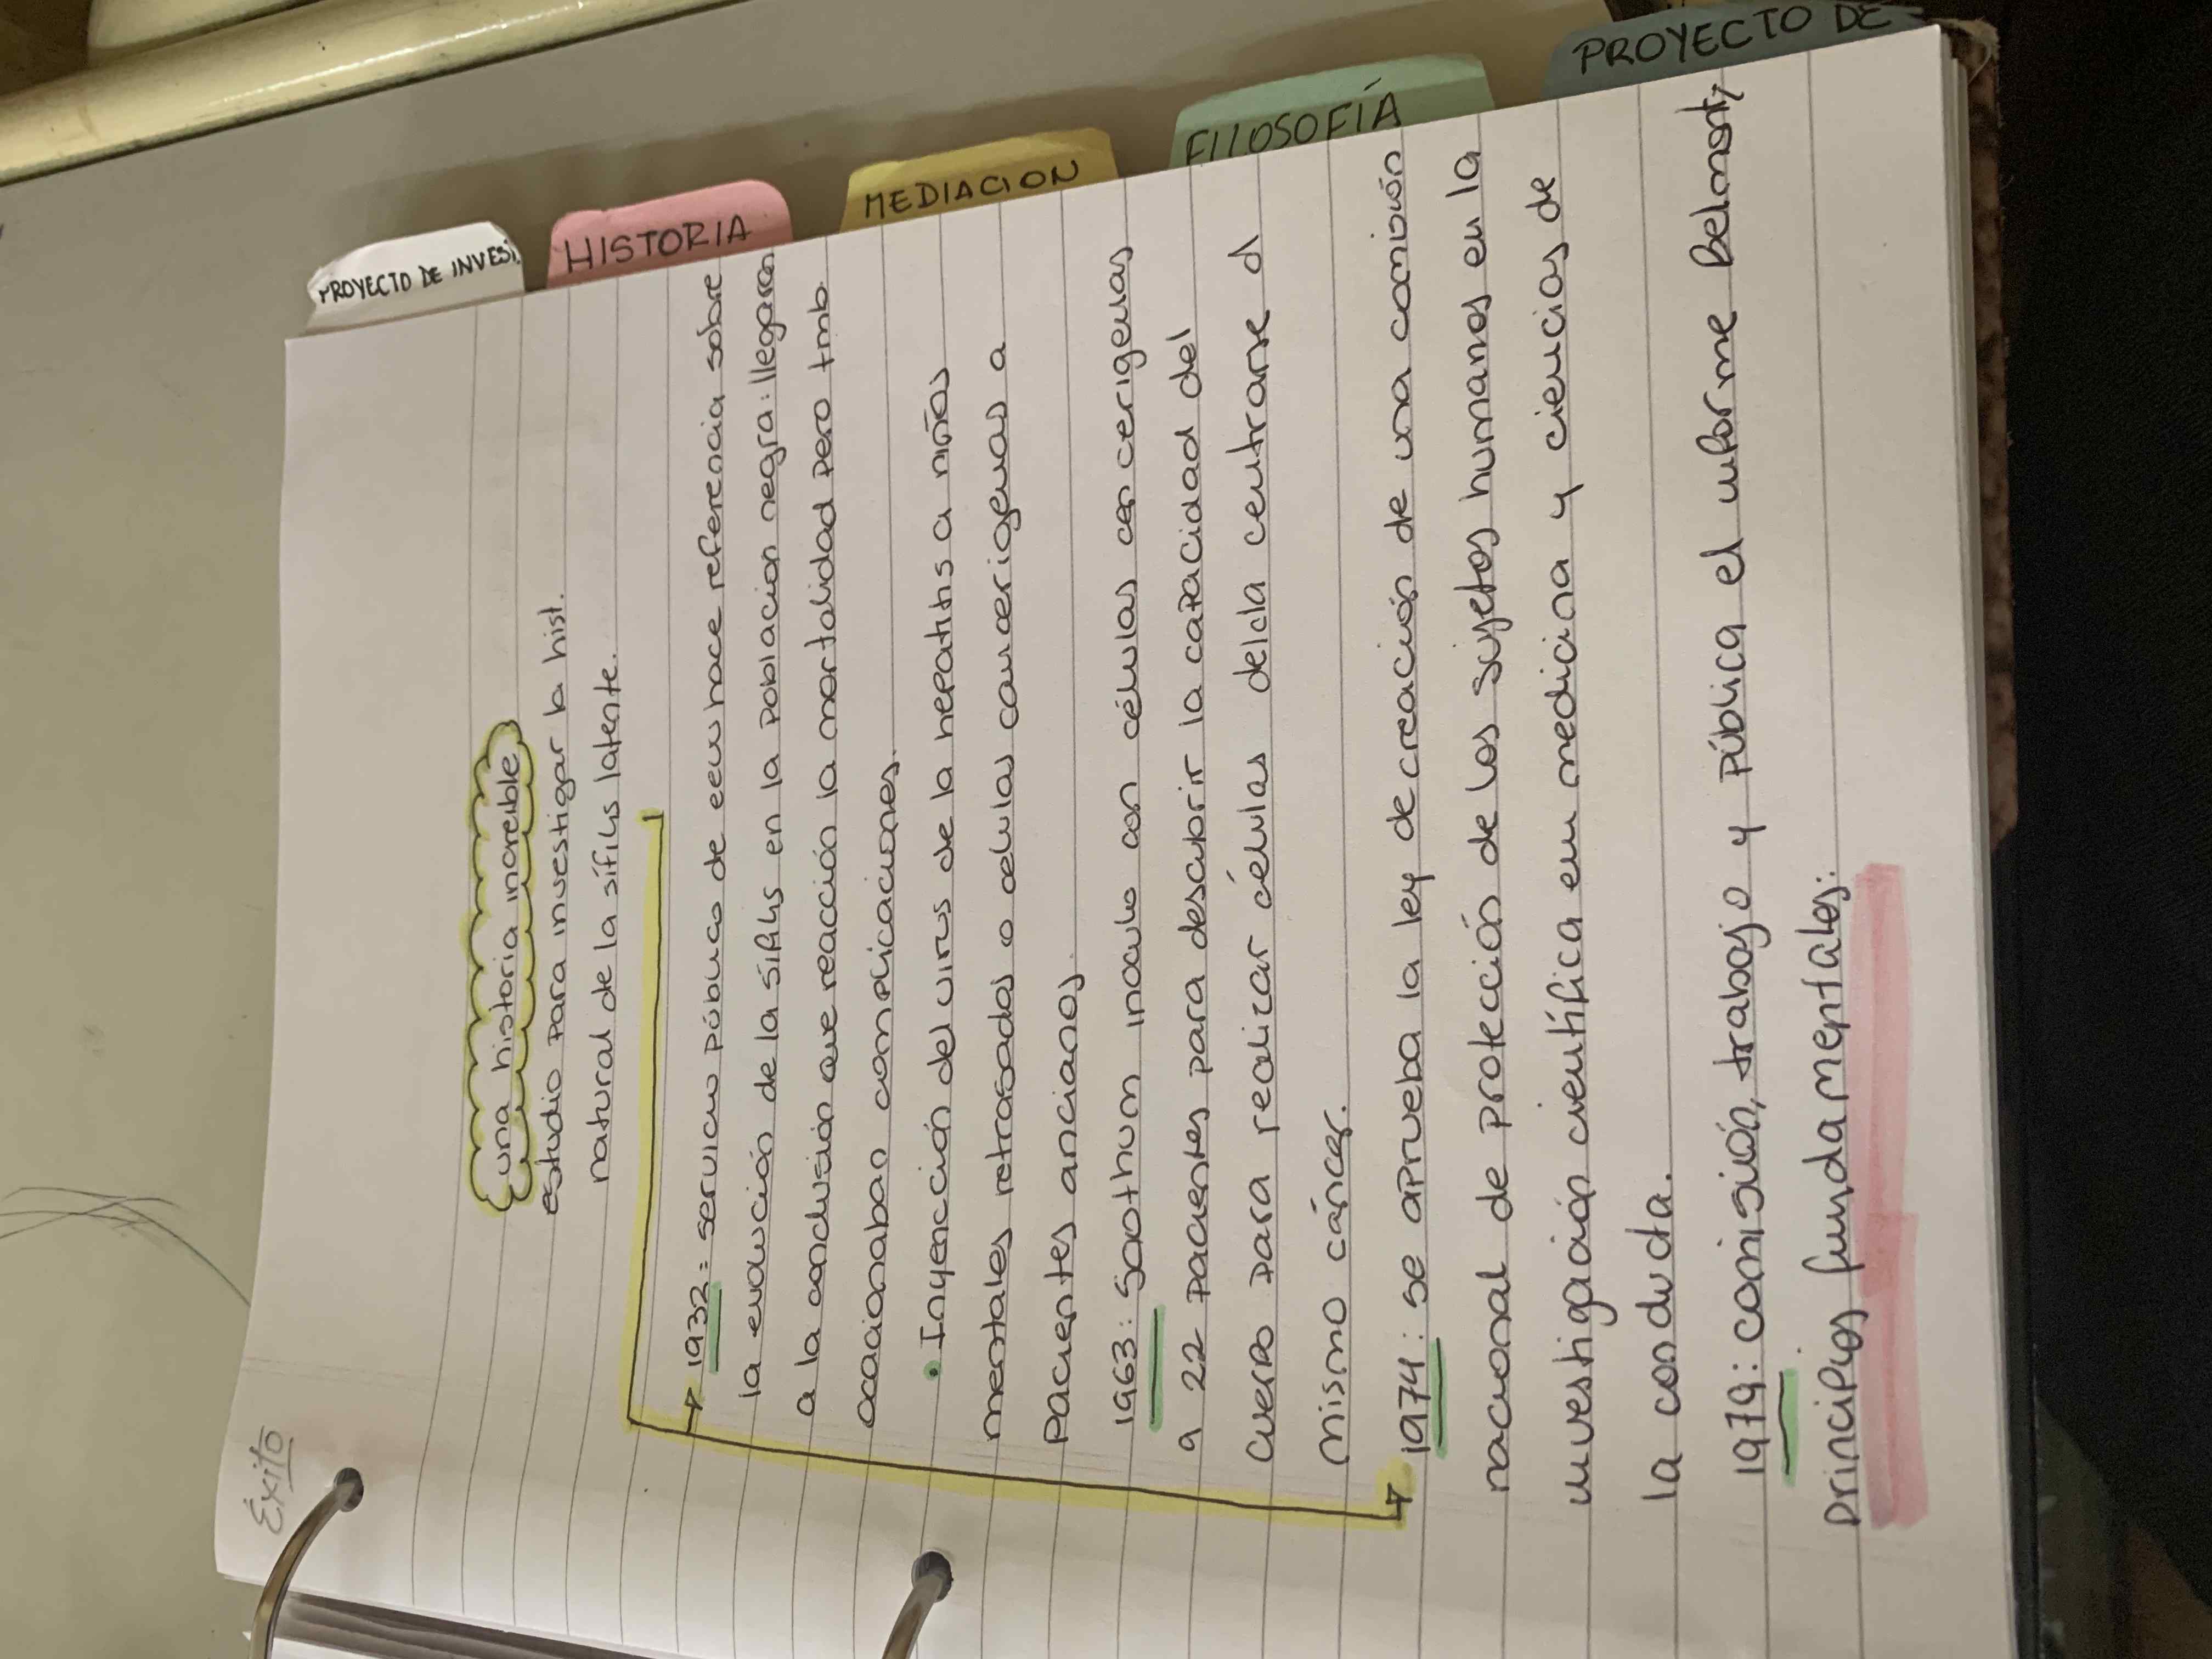 Éxito
PROYECTO DE INVESI.
HISTORIA
MEDIACION
FILOSOFÍA
PROYECTO DE
una historia increible
estudio para investigar la hist.
natural de la sífilis latente.
1932: servicio público de eeuu hace referencia sobre
la evolución de la sífilis en la población negra: llegaron
a la conclusión que reacción la mortalidad pero tmb
ocacionaban complicaciones.
• Inyención del virus de la hepatitis a niños
mentales retrasados o celulas cancerigenas a
pacientes ancianos.
1963: Soothum inoculo con células cancerigenas
a 22 pacientes para descubrir la capacidad del
cuerpo para realizar células delcla centrarse d
mismo cáncer.
1974: se aprueba la ley de creación de una comisión
nacional de protección de los sujetos humanos en la
investigación científica em medicina y ciencias de
la conducta.
1979: comisión, trabajo y pública el informe Belmont,
principios fundamentales: